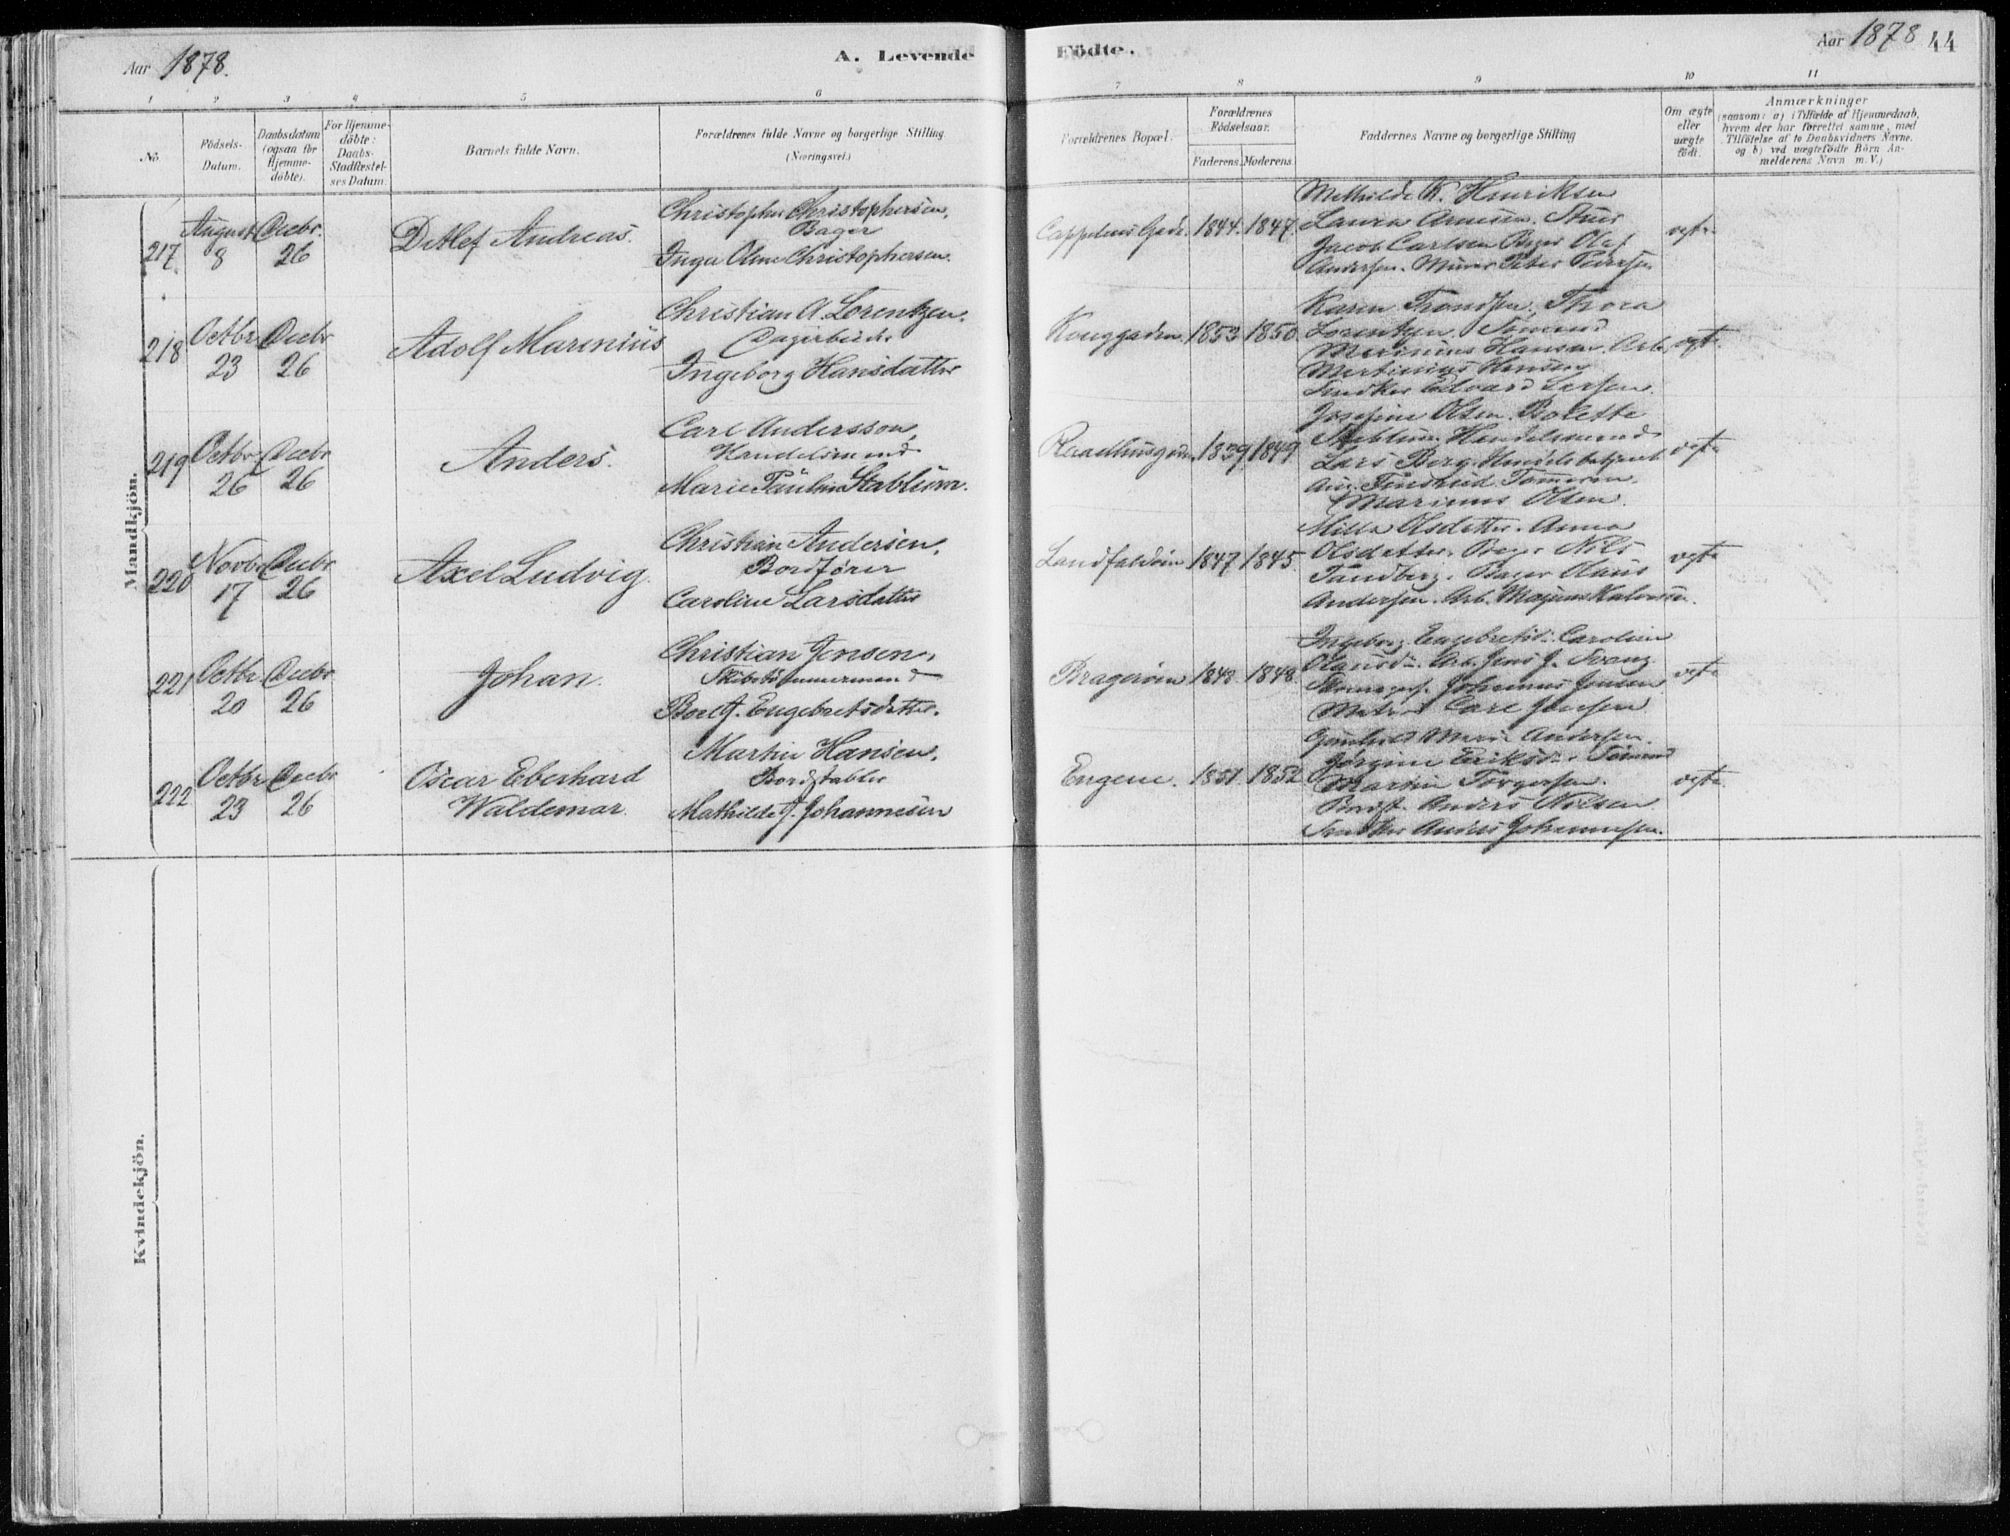 Aar 1878.
A. Levende
Födte.
Aar 1878 44
1 2 3 4 5 6
7 8 9 10 11
No
Födsels-
Datum.
Daabsdatum
(ogsaa for
Hjemme-
döbte).
For Hjemme-
döbte:
Daabs-
Stadfæstel-
ses Datum.
Barnets fulde Navn.
Forældrenes fulde Navne og borgerlige Stilling.
(Næringsvei.)
Forældrenes Bopæl.
Forældrenes
Födselsaar.
Faderens. Moderens.
Faddernes Navne og borgerlige Stilling
Om ægte
eller
uægte
födt.
Anmærkninger
(saasom: a) i Tilfælde af Hjemmedaab,
hvem der har forrettet samme, med
Tilföielse af to Daabsvidners Navne.
og b) ved uægtefödte Börn An-
melderens Navn m. V.)
Mandkjön.
217 August 8 Decbr. 26
Detlef Andreas.
Christopher Christophersen,
Bager
Inga Oline Christophersen.
1844. 1847
Mathilde K. Henriksen
Laura Arnesen
Jacob Carlsen Bager Olaf
Andersen. Murer Peter Pedersen
ægte
218 Octbr 23 Decbr 26
Adolf Marinius
Christian A. Lorentzen.
Ingeborg Hansdatter
Konggaden 1853 1850
Karen Trondsen, Thora
Lorentzen
Marinius Hansen. Arb.
Martinius Hansen
Snedker Edvard Larsen.
ægte
219 Octbr 26 Decbr 26
Anders.
Carl Andersson,
Handelsmand
Marie Pauline Stablum.
Raadhusgaden 1839 1849
Josefine Olsen. Bolette
Stablum. Handelsmand
Lars Berg. Handelsbetjent
Marinus Olsen.
ægte
220 Novbr 17 Decbr 26
Axel Ludvig.
Christian Andersen,
Bordfører
Caroline Larsdatter
Landfaldøen 1847 1845
Milla Olsdatter. Anna
Olsdatter. Bager Nils
Tandberg. Bager Olaus
Andersen. Arb. Magnus Halvorsen.
ægte
221 Octbr 20 Decbr 26
Johan.
Christian Jensen,
Skibstømmermand
Engebretsdatter.
Bragerøen 1848. 1848.
Ingeborg Engebretsd. Caroline
Arb. Jens J.
Johannes Jensen
Matros Carl Jensen
ægte
222 Octbr 23 Decbr 26
Oscar Eberhard
Waldemar.
Martin Hansen,
Bordstabler
Mathilde J. Johannesen
Engene. 1851. 1852
Gunhild Marie Andersen.
Jørgine Eriksd.
Martin Torgersen.
Bordst. Anders Nilsen
Snedker Anders Johannesen.
ægte
Kvindekjön.